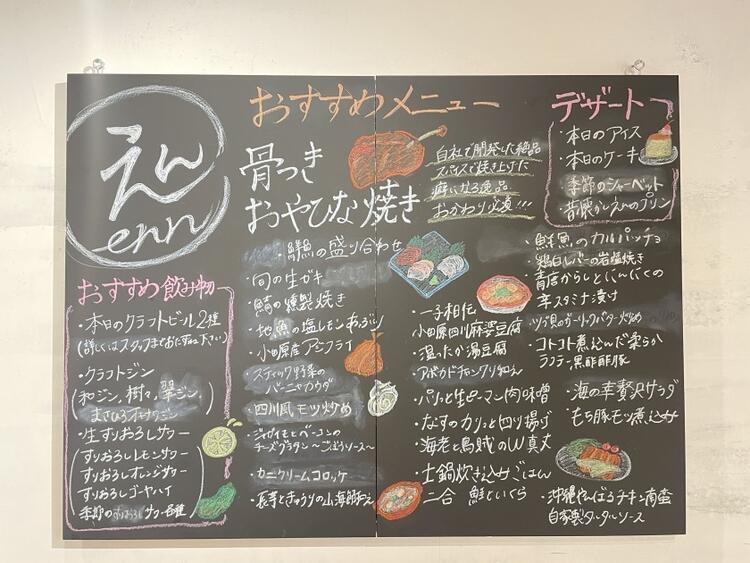 えん
enn
おすすめ飲み物
・本日のクラフトビール2種
(詳しくはスタッフまでおたずね下さい)
・クラフトジン
(和ジン、樹々、翠ジン、
まさひろオキナワジン)
・生すりおろしサワー
すりおろしレモンサワー
すりおろしオレンジサワー
すりおろしゴーヤハイ
季節のすりおろしサワー各種
おすすめメニュー
骨つき
おやひな焼き
自社で開発した絶品
スパイスで焼き上げた
癖になる逸品
おかわり必須!!!
・鮮魚の盛り合わせ
・旬の生ガキ
・鯖の燻製焼き
・地魚の塩レモンあぶり
・小田原産アジフライ
・スティック野菜の
バーニャカウダ
・四川風モツ炒め
・ジャガイモとベーコンの
チーズグラタン〜ごぼうソース〜
・カニクリームコロッケ
・長芋ときゅうりの山海漬和え
・一子相伝
小田原四川麻婆豆腐
・温ったか湯豆腐
・アボカドチャンジャ和え
・パリッと生ピーマン肉味噌
・なすのカリッと四川揚げ
・海老と烏賊のW真丈
・土鍋炊き込みごはん
二合 鮭といくら
デザート
・本日のアイス
・本日のケーキ
・季節のシャーベット
・昔懐かしえんのプリン
・鮮魚のカルパッチョ
・鶏白レバーの岩塩焼き
・青唐からしとにんにくの
辛スタミナ漬け
・ツブ貝のガーリックバター炒め
・コトコト煮込んだ柔らか
ラフテー黒酢酢豚
・海の幸贅沢サラダ
・もち豚モツ煮込み
・沖縄やんばるチキン南蛮
自家製タルタルソース